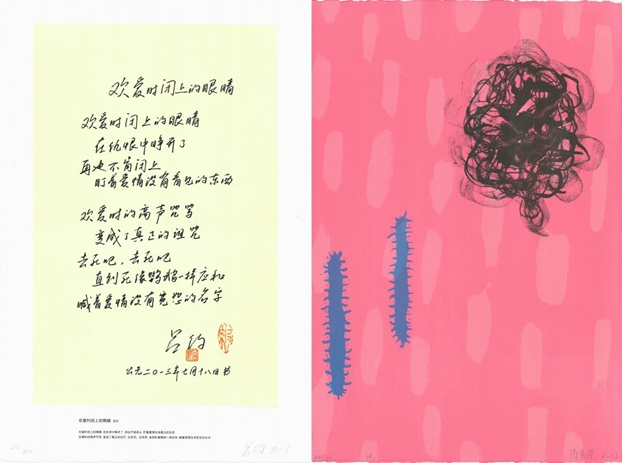 欢爱时闭上的眼睛
欢爱时闭上的眼睛
在仇恨中睁开了
再也不肯闭上
盯着爱情没有看见的东西
欢爱时的高声咒骂
变成了真正的诅咒
去死吧，去死吧
直到死像鹦鹉一样应和
喊着爱情没有的名字
吕约
公元二〇一三年七月十八日书
欢爱时闭上的眼睛 吕约